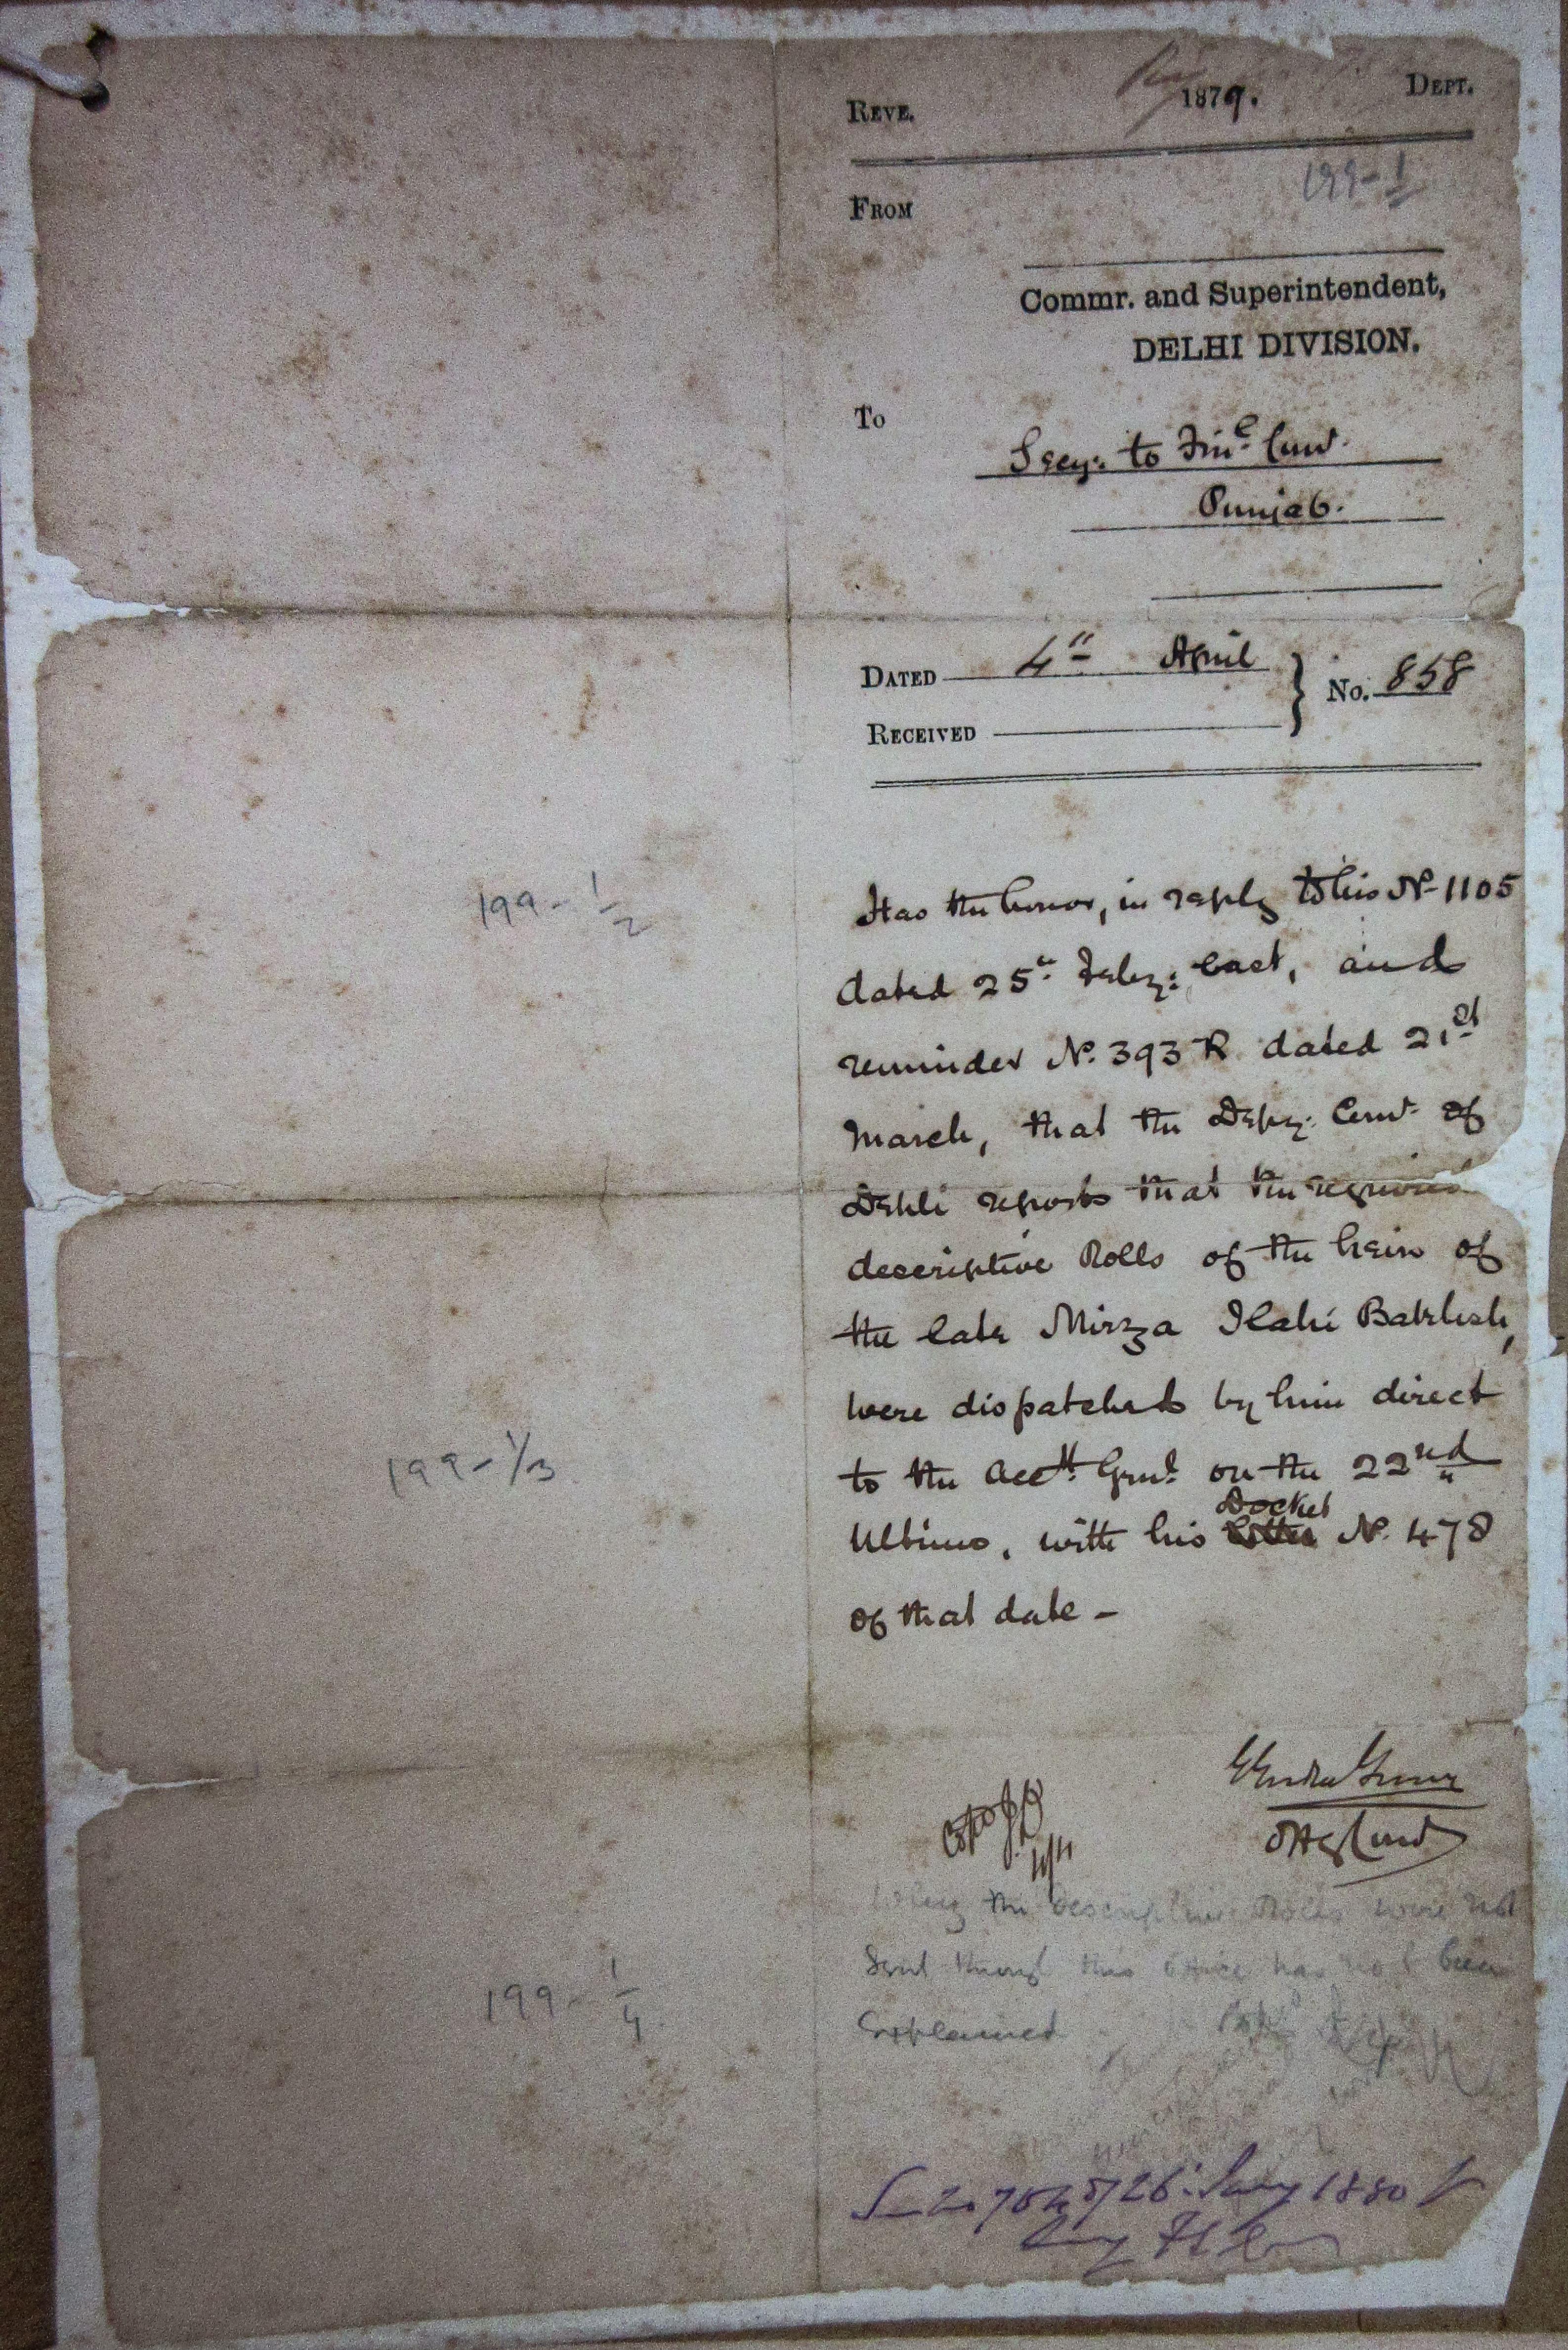 REVE. 1879. DEPT.
199-1
FROM
Commr. and Superintendent,
DELHI DIVISION.
To
Secy: to Finl. Comr.
Punjab.
DATED 4th April
No. 858
RECEIVED
Has the honor, in reply to his No. 1105
dated 25th Feby: last, and
reminder No. 393 R dated 21st
March, that the Depy: Comr. of
Dehli reports that the required
descriptive Rolls of the heirs of
the late Mirza Ilahi Bakhsh,
were dispatched by him direct
to the Acctt. Genl. on the 22nd
Ultimo, with his Docket No. 478
of that date -
199-1/2
199-1/3
199-1/4
Offg Comr
4/4
Why the descriptive Rolls were not
sent through this office has not been
Explained
26th 1880